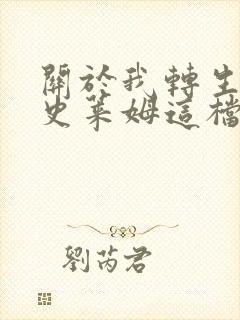 關於我轉生
史萊姆這檔
劉芮君